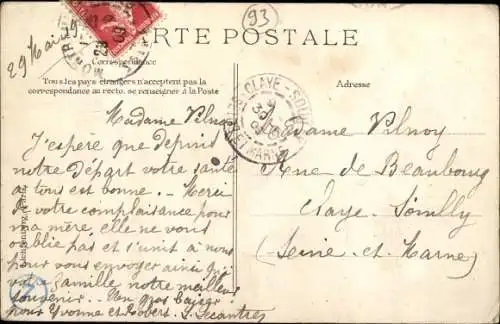 93
CARTE POSTALE
29 Mai 09
Correspondance
Tous les pays étrangers n'acceptent pas la
correspondance au recto. se renseigner à la Poste
Adresse
CLAYE-SOUILLY
Madame Vilnoy
J'espère que depuis
notre départ votre santé
a tous est bonne. - Merci
de votre complaisance pour
ma mère, elle ne vous
oublie pas et s'unit à nous
pour vous envoyer ainsi qu'à
votre famille notre meilleur
souvenir. Un gros baiser
pour Yvonne et Robert. J. Lecantres
Madame Vilnoy
Rue de Beaubourg
Claye-Souilly
(Seine-et-Marne)